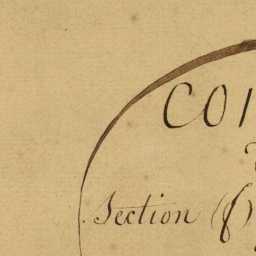 CO
Section (f)